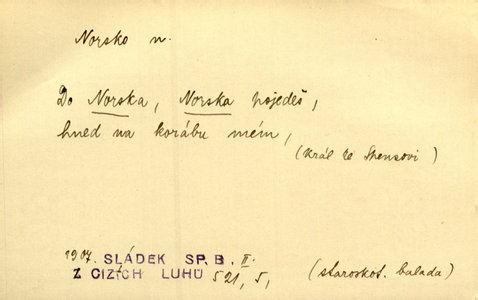 Norsko n.
Do Norska, Norska pojedeš,
hned na korábu mém,
(Král ke Spensovi)
1907. SLÁDEK SP. B. II.
Z CIZÍCH LUHŮ 521, 5,
(staroskot. balada)